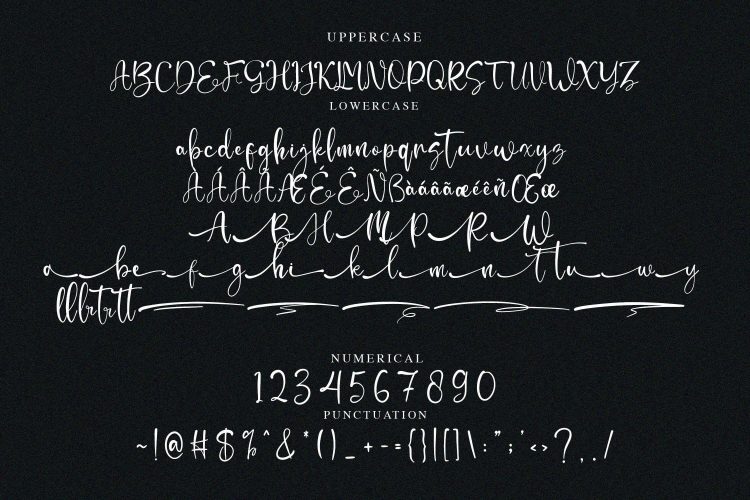 UPPERCASE
ABCDEFGHIJKLMNOPQRSTUVWXYZ
LOWERCASE
abcdefghijklmnopqrstuvwxyz
ÀÁÂÃÆÉÊÑßàáâãæéêñŒœ
A B H M P R W
a b e f g h i k l m n t t u w y
lll br tr tt
NUMERICAL
1234567890
PUNCTUATION
~!@#$%^&*()_+-={}|[]\:";'<>?,./